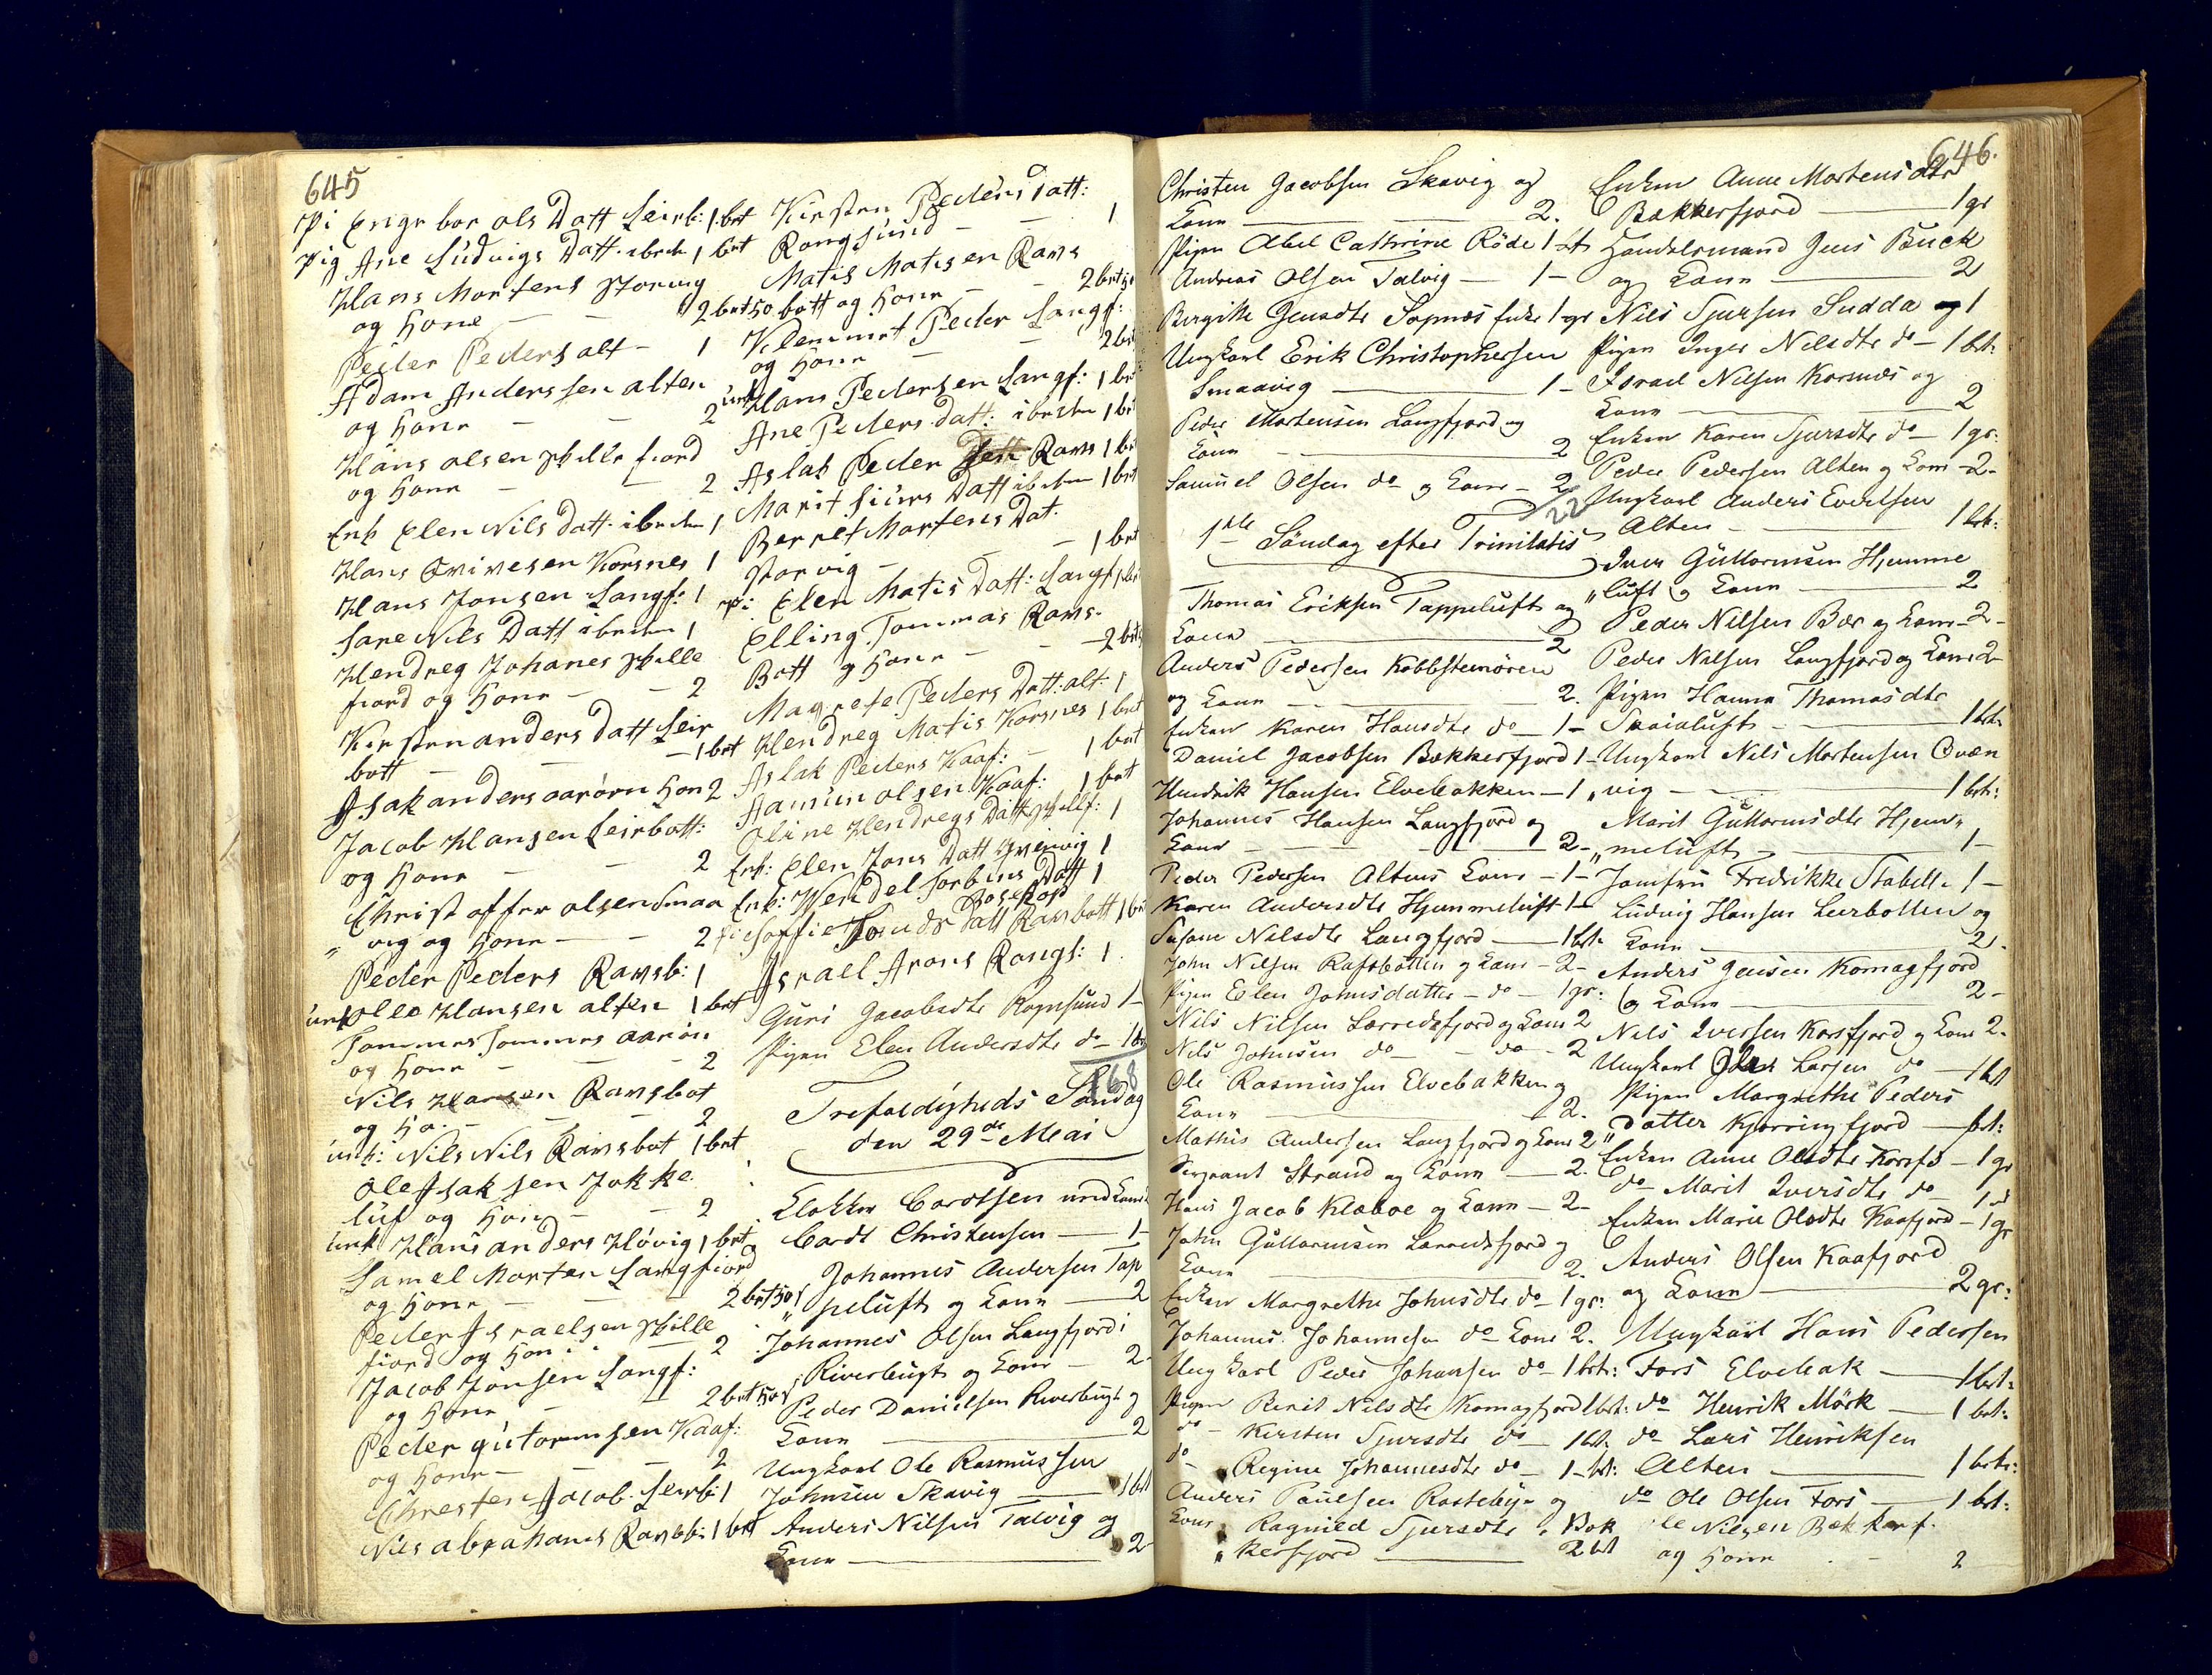 645
Pi Engr bor ols Datt Leirb: 1 brt
Pig Ane Ludvigs Datt ibidn 1 brt
Hans Mortens Storvig
og Kone — — 2 brt
Peder Peders alt — 1
Adam Anderssen alten
og Kone — — 2
Hans olsen Stille fiord
og Kone — — 2
Enk Elen Nils datt ibidn 1
Hans Korsnes 1
Hans Jonsen Langf: 1
Sare Nils Datt ibidn 1
Hendreg Johanes Stille
fiord og Kone — — 2
Kirsten anders datt Leir
bott — — 1 brt
Isak anders aarøen Kon 2
Jacob Hansen Leirbott:
og Kone — — 2
Christoffer olsen Smaa
„ vig og Kone — — 2
Peder Peders Ramsb: 1
unk Ole Hansen alten 1 brt
Tommes Tommes aarøn
og Kone — — 2
Nils Hansen Ramsbot
og Ko. — — 2
unk: Nils Nils Ramsbot 1 brt
Ole Isaksen Jokke
luf og Kone — — 2
unk Hans anders Høvig 1 brt
Samel Morten Langfiord
og Kone — — 2 brt
Peder Israelsen Stille
fiord og Kon: — 2
Jacob Jonsen Langf:
og Kone — 2 brt
Peder gutormsen Kaaf:
og Kone — — 2
Chresten Jacob. Leirb: 1
Nils abrahams Rambb: 1 brt
Kirsten Peders Datt:
Rongsund — — 1
Matis Matisen Rams
bott og Kone — — 2 brt
Klemmet Peder Langf:
og Kone — — 2 brt
unk Hans Pedersen Langf: 1 brt
Ane Peders datt: ibidn 1 brt
Aslak Peder Rams 1 brt
Marit Siurs Datt ibidn 1 brt
Berret Mortens Dat.
Storvig — — 1 brt
Pi: Elen Matis Datt: Langf 1 brt
Elling Tommas Rams-
Bott og Kone — — 2 brt
Magrete Peders Datt: alt: 1
Hendreg Matis Korsnes 1 brt
Aslak Peders Kaaf: — 1 brt
Aamun olsen Kaaf: 1 brt
Oline Hendregs Datt Stillf: 1
Enk: Elen Jons Datt 1
Enk: Wendel Torbins Datt 1
Bosekop
Pi Soffie Datt Ramsbott 1 brt
Israel Arons Rongs: 1
Guri Jacobsdtr Rognsund 1 —
Pigen Elen Andersdtr do — 1 brt
168
Trefoldigheds Søndag
den 29de Mai
Klokker Cordtsen med Kone
Cordt Christensen — 1 —
Johannes Andersen Tap
„ peluft og Kone — 2
Johannes Olsen Langfjord i
Riverbugt og Kone — 2
Peder Danielsen Riverbugt og
Kone — 2
Ungkarl Ole Rasmussen
Johnsen Skavig — 1 brt
Anders Nilsen Talvig og
Kone — 2
646.
Christen Jacobsen Skavig og
Kone — — 2.
Pigen Abel Cathrine Röde 1 brt
Andreas Olsen Talvig — 1 —
Birgitte Jensdtr Sopnes Enke 1 gr
Ungkarl Erik Christophersen
Smaavig — 1 —
Peder Mortensen Langfjord og
Kone — 2
Samuel Olsen do og Kone — 2
22
1ste Söndag efter Trinitatis
Thomas Eriksen Tappeluft og
Kone — 2
Anders Pedersen Kobbstemören
og Kone — 2.
Enken Karen Hansdtr do — 1 —
Daniel Jacobsen Bekkerfjord 1 —
Hendrik Hansen Elvebakken — 1
Johannes Hansen Langfjord og
Kone — 2 —
Peder Pedersen Altens Kone — 1 —
Karen Andersdtr Hjemmeluft 1 —
Susane Nilsdtr Langfjord — 1 brt.
John Nilsen Rafsbotten og Kone — 2 —
Pigen Elen Johnsdatter — do — 1 gr:
Nils Nilsen Lærredsfjord og Kone 2
Nils Johnsen do — do — 2
Ole Rasmussen Elvebakken og
Kone — 2.
Mathis Andersen Langfjord og Kone 2
Sergeant Strand og Kone — 2.
Hans Jacob Klæboe og Kone — 2 —
John Guttormsen Lærredsfjord og
Kone — 2.
Enken Margrethe Johnsdtr do — 1 gr:
Johannes Johannesen do Kone 2.
Ungkarl Peder Johansen do — 1 brt:
Pigen Berit Nilsdtr Komagfjord 1 brt:
do — Kirsten Sjursdtr do — 1 brt.
do — Regine Johannesdtr do — 1 — brt:
Anders Paulsen Rastebye og
Kone, Ragnild Sjursdtr, Bek
„ kerfjord — 2 brt
Enken Anne Mortensdtr
Bekkerfjord — 1 gr
Handelsmand Jens Buck
og Kone — 2
Nils Sjursen Sudda og 1
Pigen Inger Nilsdtr do — 1 brt:
Israel Nilsen Korsnes og
Kone — 2
Enken Karen Sjursdtr do — 1 gr:
Peder Pedersen Alten og Kone — 2 —
Ungkarl Anders Evertsen
Alten — 1 brt:
Iver Guttormsen Hjemme
„ luft og Kone — 2
Peder Nilsen Bær og Kone — 2 —
Peder Nilsen Langfjord og Kone 2 —
Pigen Hanna Thomasdtr
Skaialuft — 1 brt.
Ungkarl Nils Mortensen Qvæn
„ vig — 1 brt:
Marit Guttormsdtr Hjem„
„ meluft — 1 —
Jomfru Fredrikke Stabell — 1 —
Ludvig Hansen Leerbotten og
Kone — 2.
Anders Jensen Komagfjord
og Kone — 2 —
Nils Iversen Korsfjord og Kone 2.
Ungkarl Larsen do — 1 brt
Pigen Margrethe Peders
„ datter Kjerringfjord — brt:
Enken Anne Olsdtr Korsfj — 1 gr
do Marit Iversdtr do — 1 —
Enken Marie Olsdtr Kaafjord — 1 gr
Anders Olsen Kaafjord
og Kone — 2 gr:
Ungkarl Hans Pedersen
Fors Elvebak — 1 brt:
do Henrik Mörk — 1 brt:
do Lars Henriksen
Alten — 1 brt:
do Ole Olsen Fors — 1 brt:
Ole Nilsen Bekkerf.
og Kone — 2